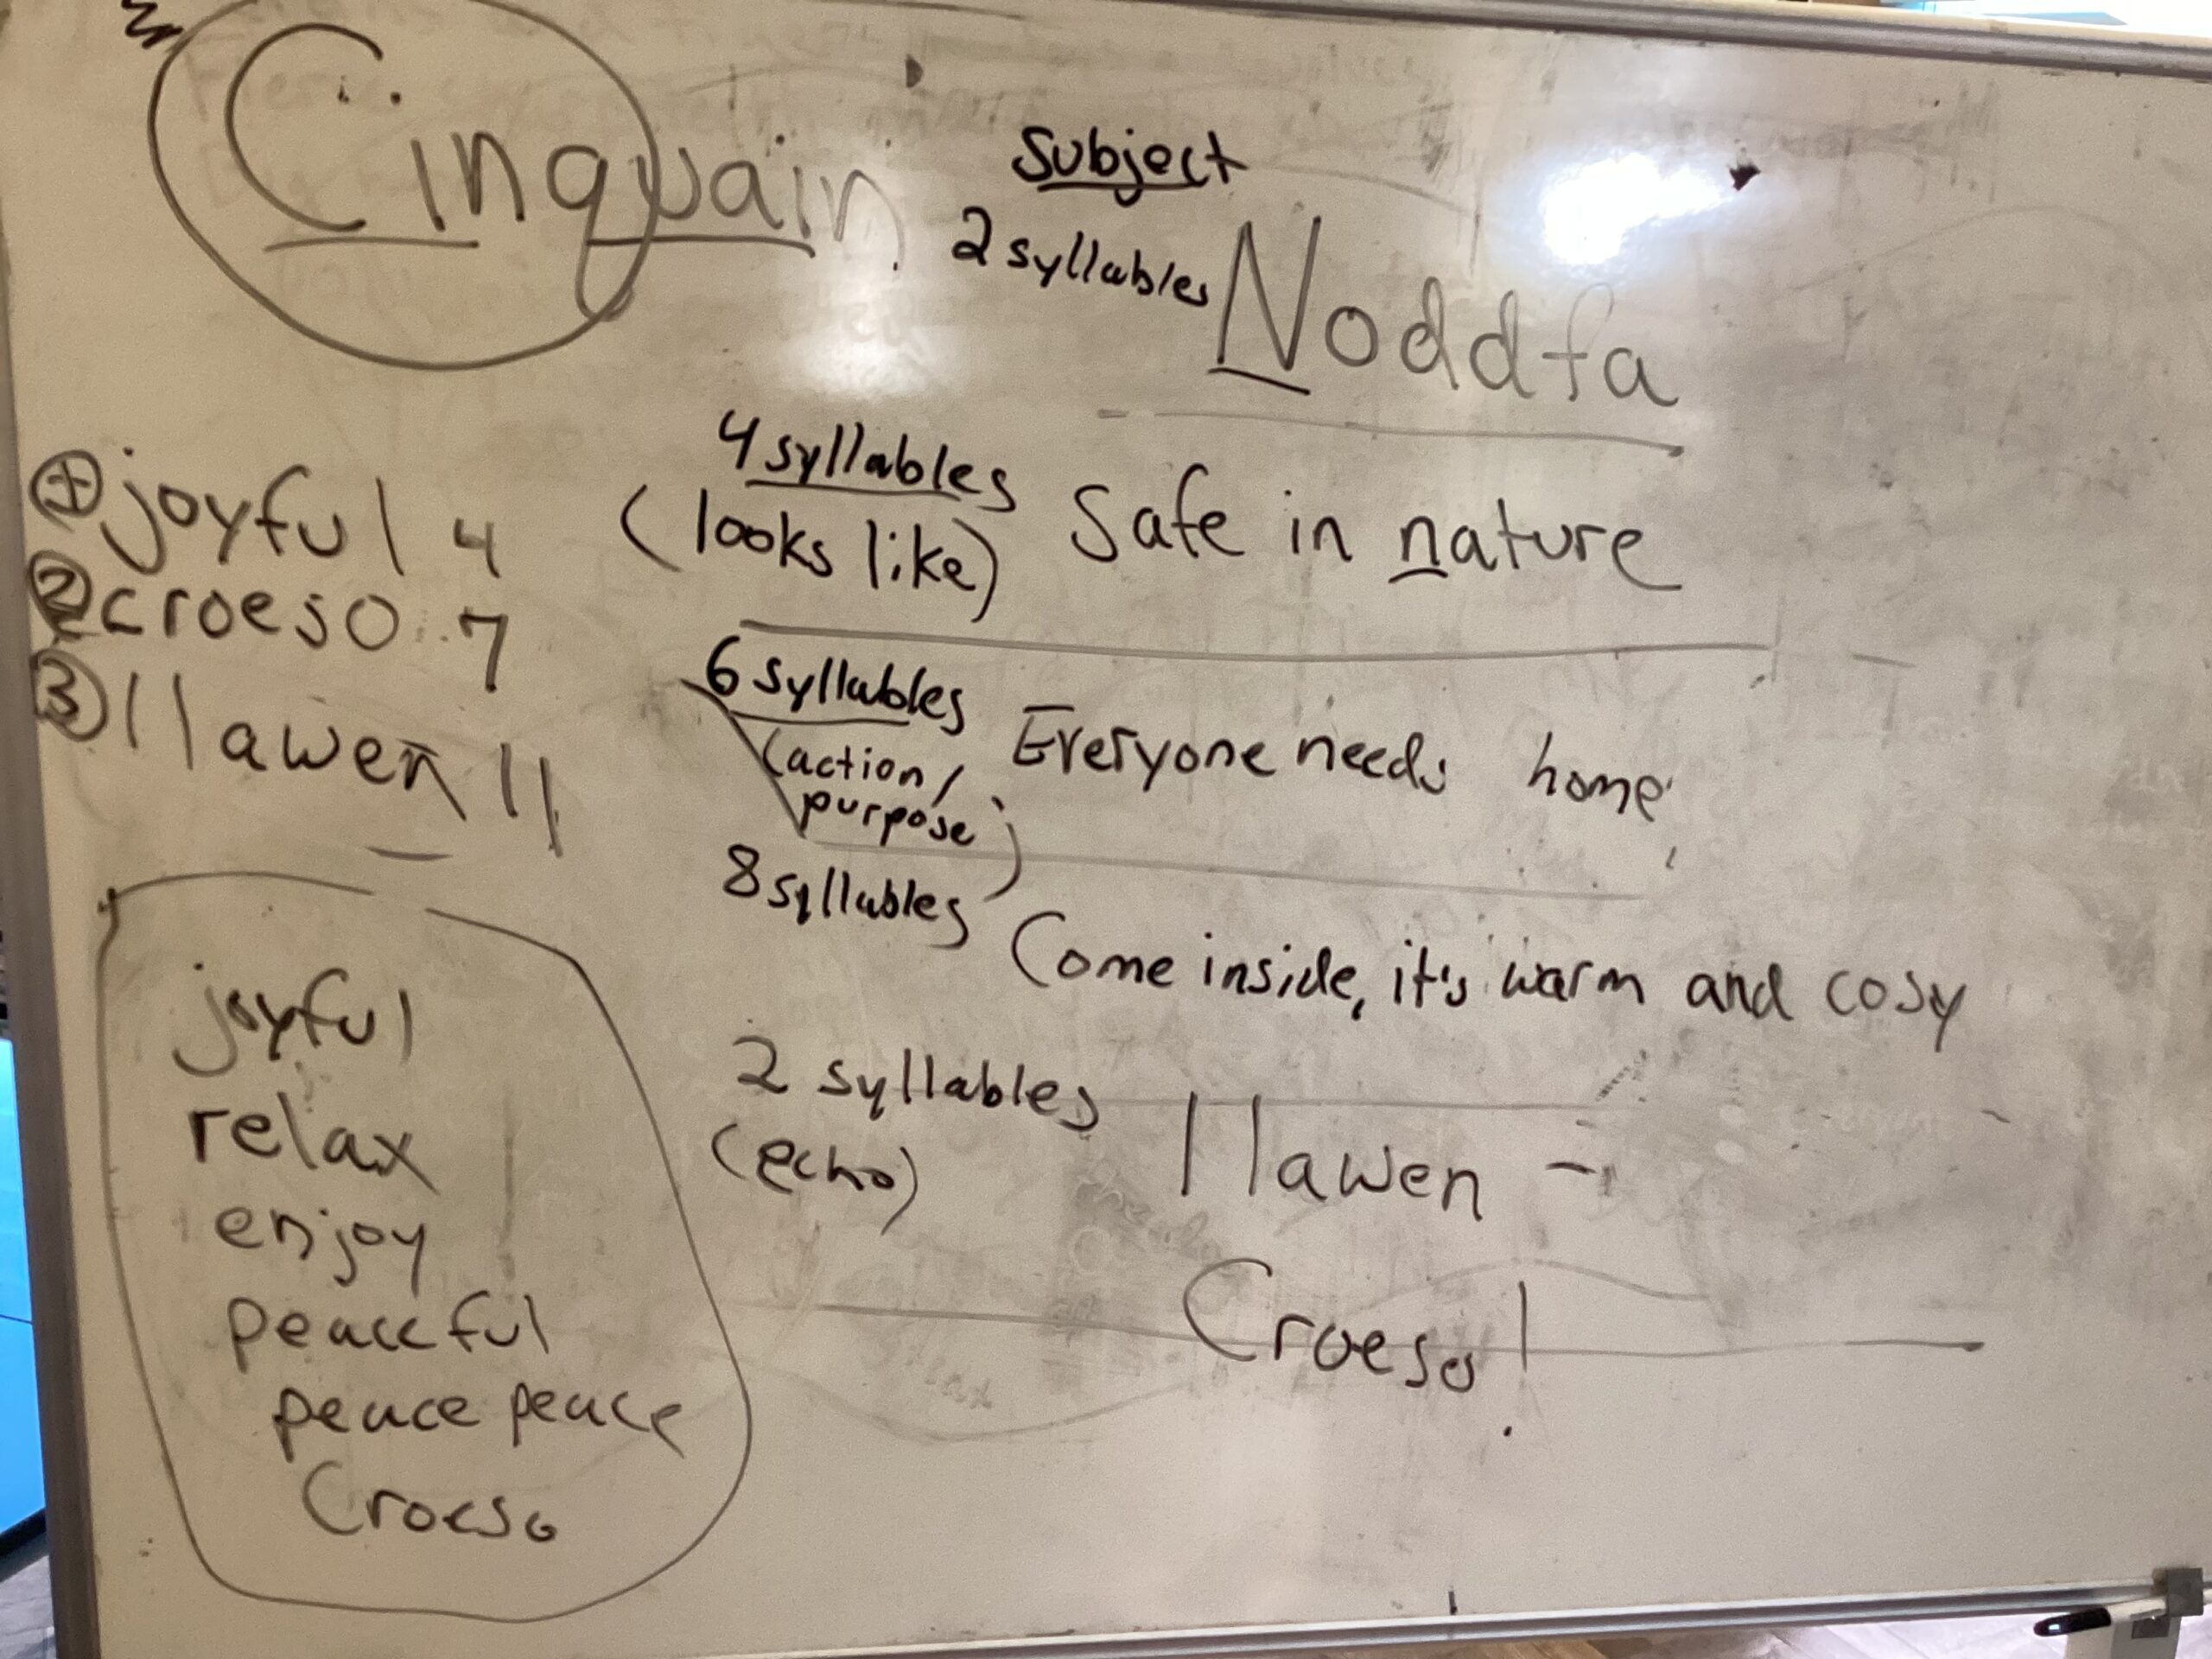 Cinquain
Subject
2 syllables
Noddfa
4 syllables
(looks like)
Safe in nature
6 syllables
(action/
purpose)
Everyone needs home
8 syllables
Come inside, it's warm and cosy
2 syllables
(echo)
llawen -
Croeso!
1 joyful 4
2 croeso 7
3 llawen 11
joyful
relax
enjoy
peaceful
peace peace
Croeso